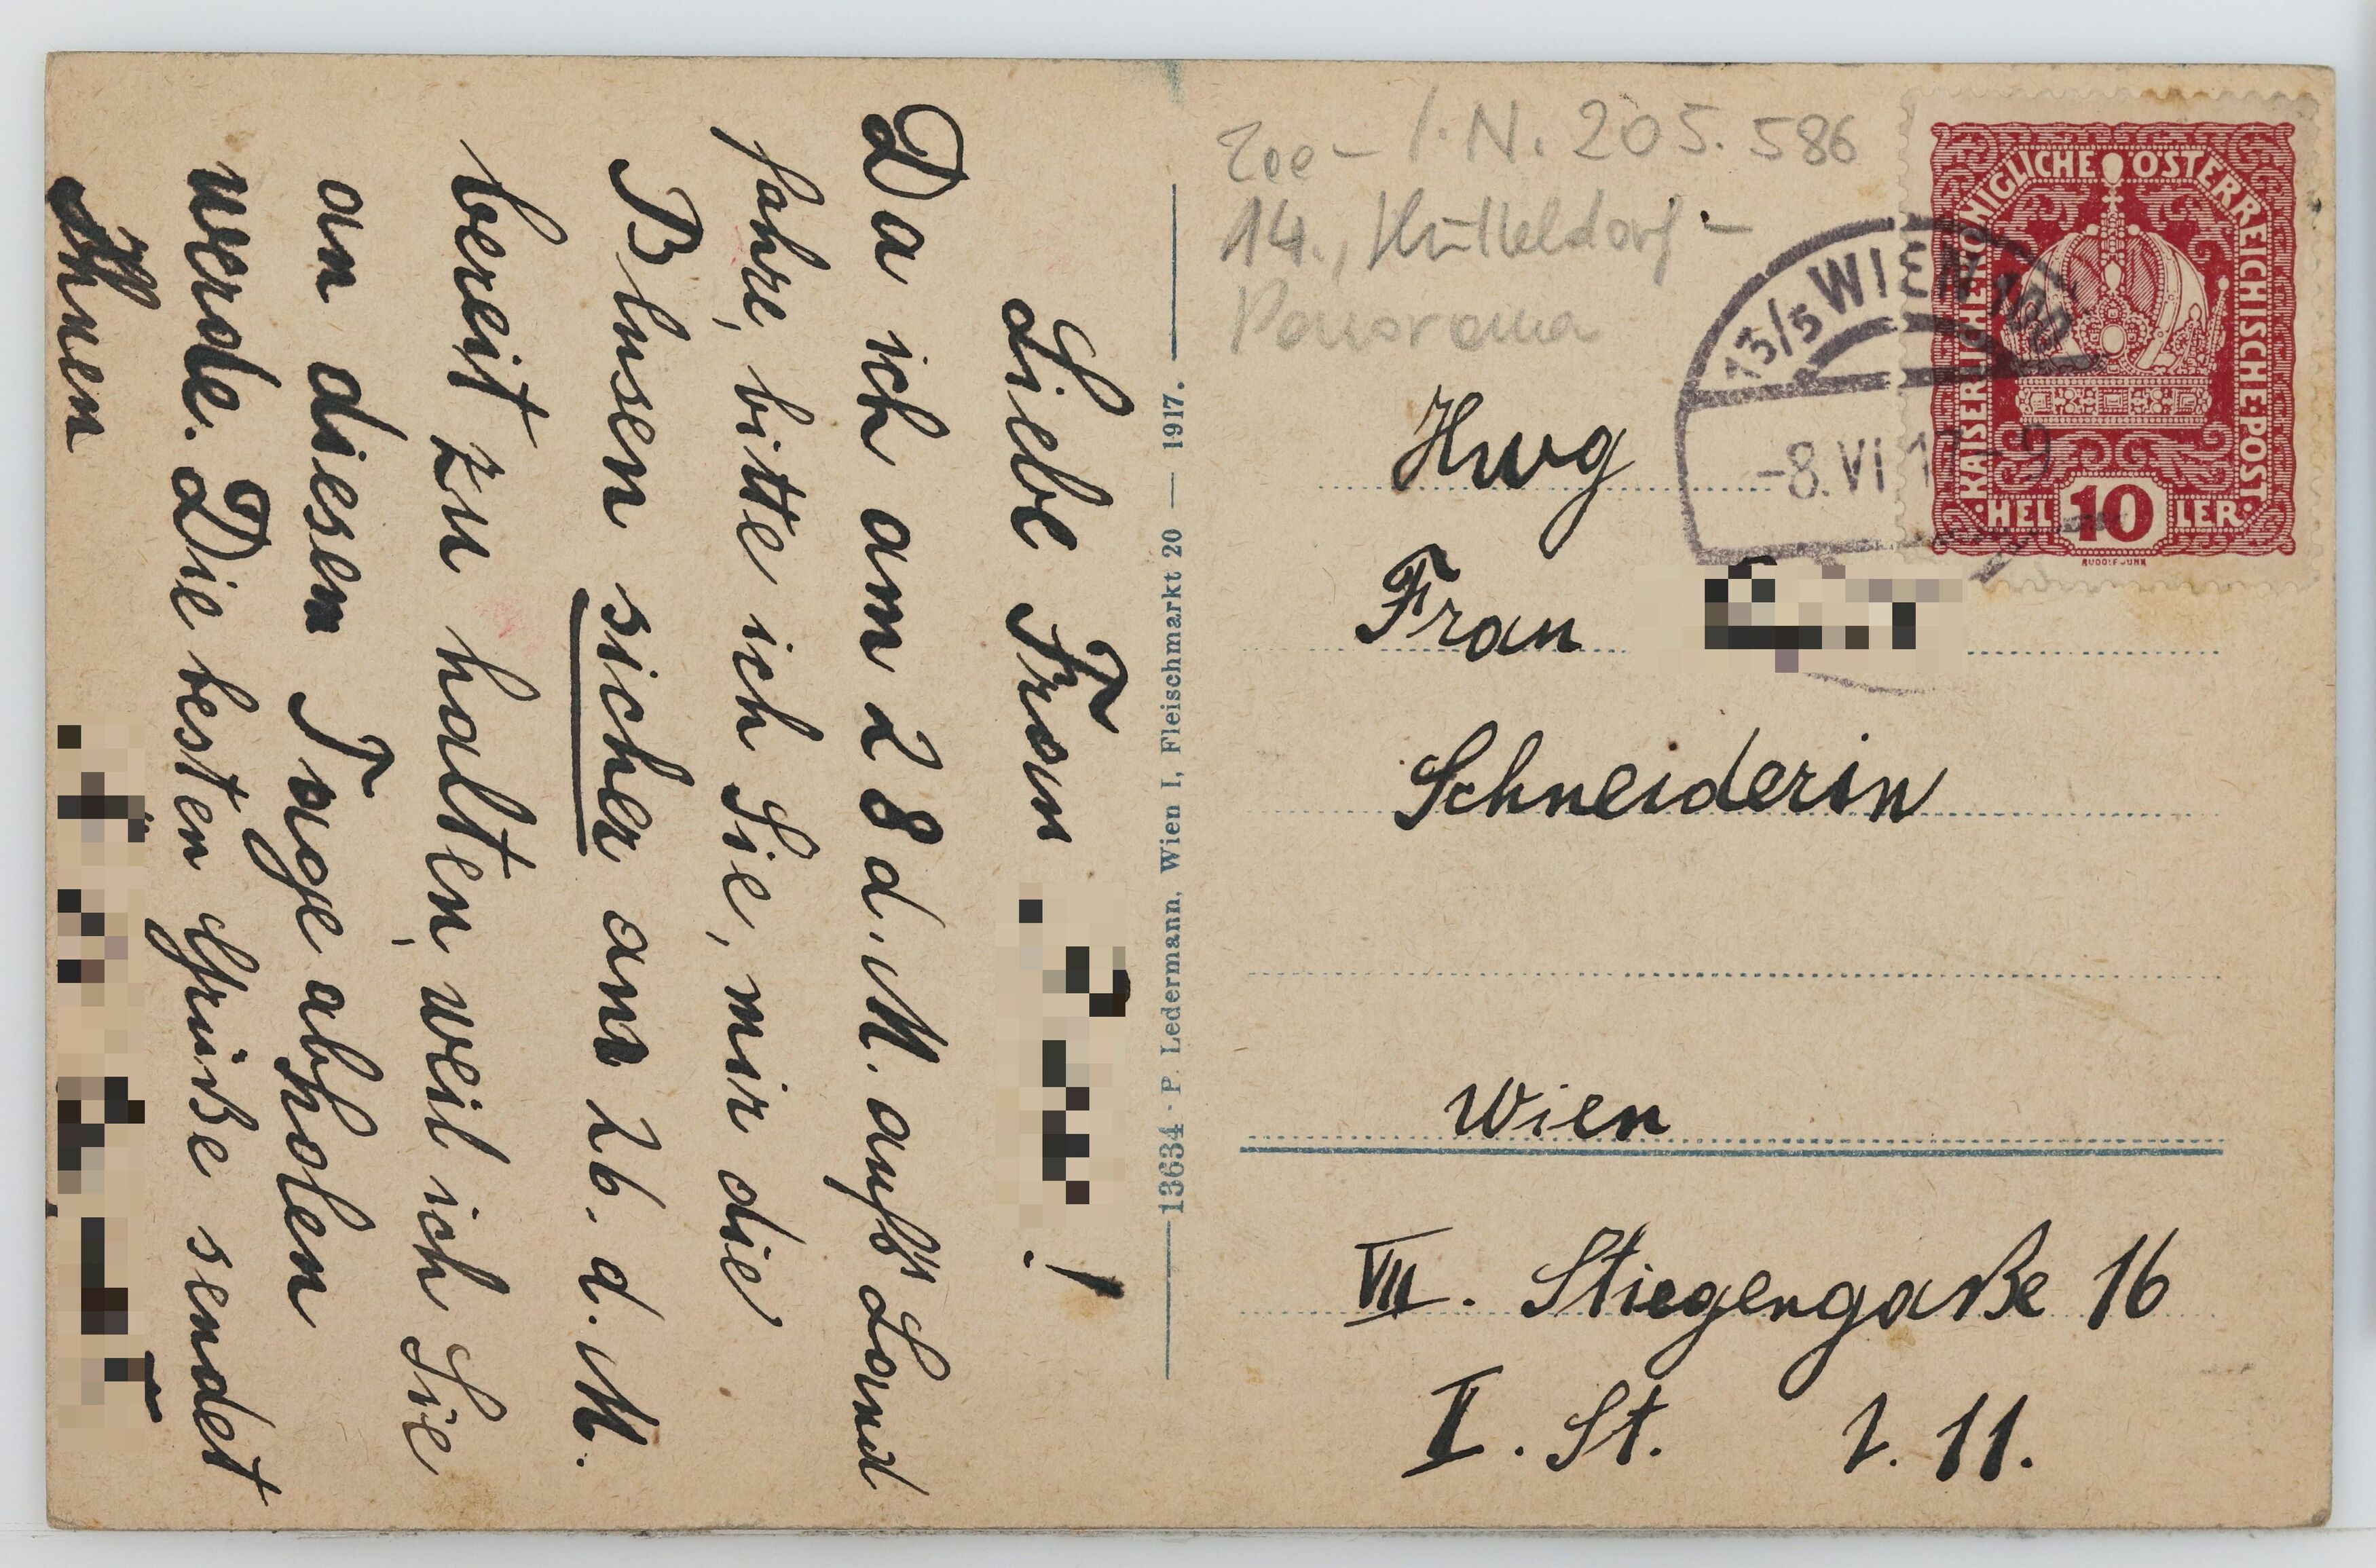 Liebe Frau !
Da ich am 28 d. M. aufs Land
fahre, bitte ich Sie, mir die
Blusen sicher am 26. d. M.
bereit zu halten, weil ich Sie
an diesem Tage abholen
werde. Die besten Grüße sendet
Ihnen
13634 · P. Ledermann, Wien I, Fleischmarkt 20 — 1917.
I. N. 205.586
14., Hütteldorf –
Panorama
KAISERLICHE KÖNIGLICHE ÖSTERREICHISCHE POST
HELLER 10
RUDOLF JUNK
13/5 WIEN
-8.VI 17-9
Frau
Schneiderin
Wien
VII. Stiegengaße 16
II. St. T. 11.